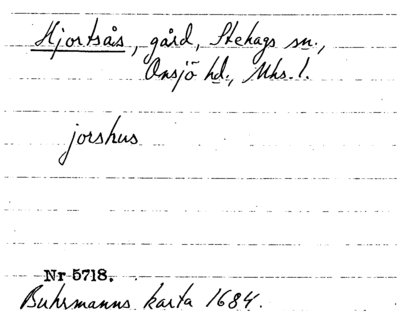 Hjortsås, gård, Stehags sn.,
Onsjö hd., Mhs. l.
jorshus
Nr 5718.
Buhrmanns karta 1684.